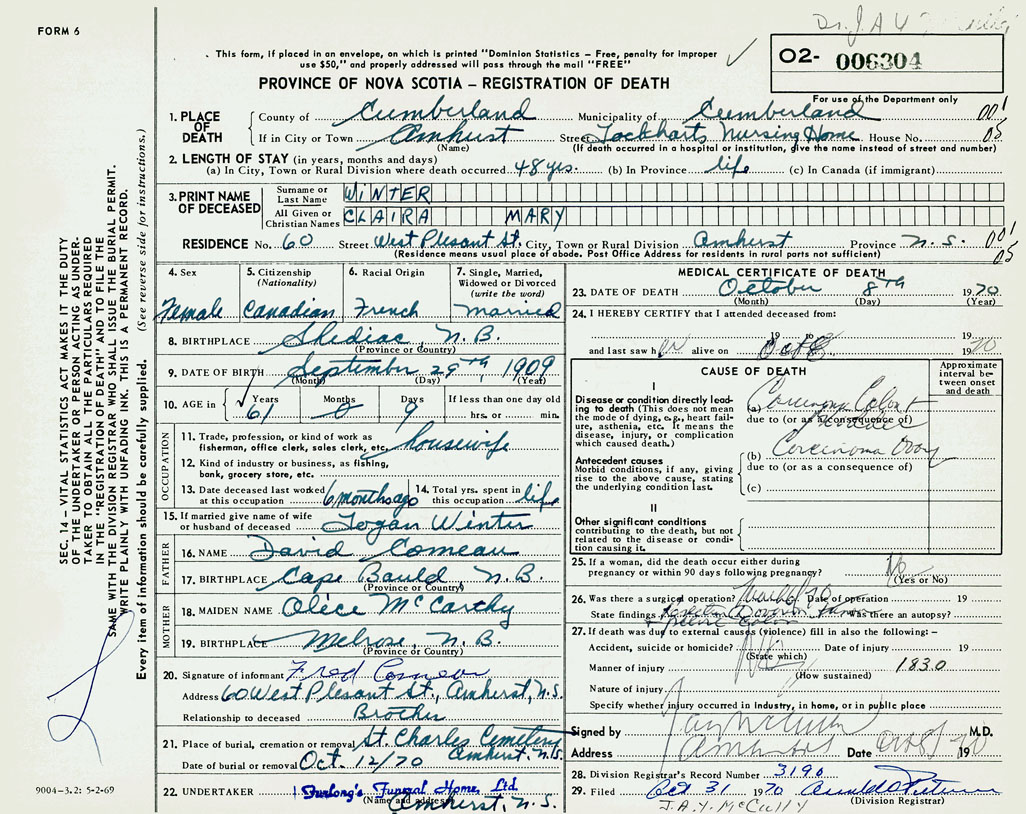 FORM 6
Dr. J A Y
. This form, if placed in an envelope, on which is printed "Dominion Statistics – Free, penalty for improper
use $50," and properly addressed will pass through the mail "FREE"
O2- 006304
PROVINCE OF NOVA SCOTIA – REGISTRATION OF DEATH
For use of the Department only
1. PLACE OF DEATH
County of Cumberland Municipality of Cumberland 001
If in City or Town Amhurst Street Lockharts Nursing Home House No. 05
(Name) (If death occurred in a hospital or institution, give the name instead of street and number)
2. LENGTH OF STAY (in years, months and days)
(a) In City, Town or Rural Division where death occurred 48 yrs. (b) In Province life (c) In Canada (if immigrant)
3. PRINT NAME OF DECEASED
Surname or Last Name WINTER
All Given or Christian Names CLAIRA MARY
RESIDENCE No. 60 Street West Plesant St. City, Town or Rural Division Amherst Province N.S. 001
05
(Residence means usual place of abode. Post Office Address for residents in rural parts not sufficient)
4. Sex
Female
5. Citizenship
(Nationality)
Canadian
6. Racial Origin
French
7. Single, Married,
Widowed or Divorced
(write the word)
Married
8. BIRTHPLACE Shediac, N.B.
(Province or Country)
9. DATE OF BIRTH September 29th, 1909
(Month) (Day) (Year)
10. AGE in
Years Months Days If less than one day old
61 0 9 hrs. or min.
OCCUPATION
11. Trade, profession, or kind of work as
fisherman, office clerk, sales clerk, etc. housewife
12. Kind of industry or business, as fishing,
bank, grocery store, etc.
13. Date deceased last worked
at this occupation 6 months ago
14. Total yrs. spent in
this occupation life
15. If married give name of wife
or husband of deceased Logan Winter
FATHER
16. NAME David Comeau
17. BIRTHPLACE Cape Bauld N.B.
(Province or Country)
MOTHER
18. MAIDEN NAME Alice McCarthy
19. BIRTHPLACE Melrose N.B.
(Province or Country)
20. Signature of informant Fred Comeau
Address 60 West Plesant St., Amherst, N.S.
Relationship to deceased Brother
21. Place of burial, cremation or removal St. Charles Cemetery
Amherst, N.S.
Date of burial or removal Oct. 12/70
22. UNDERTAKER Furlong's Funeral Home, Ltd.
(Name and address)
Amherst, N.S.
MEDICAL CERTIFICATE OF DEATH
23. DATE OF DEATH October 8th 1970
(Month) (Day) (Year)
24. I HEREBY CERTIFY that I attended deceased from:
19 19
and last saw her alive on Oct 8 1970
CAUSE OF DEATH
Approximate
interval be-
tween onset
and death
I
Disease or condition directly lead-
ing to death (This does not mean
the mode of dying, e.g., heart fail-
ure, asthenia, etc. It means the
disease, injury, or complication
which caused death.)
(a) Carcinoma Colon +
due to (or as a consequence of)
Antecedent causes
Morbid conditions, if any, giving
rise to the above cause, stating
the underlying condition last.
(b) Carcinoma Ovary
due to (or as a consequence of)
(c)
II
Other significant conditions
contributing to the death, but not
related to the disease or condi-
tion causing it.
25. If a woman, did the death occur either during
pregnancy or within 90 days following pregnancy? No
(Yes or No)
26. Was there a surgical operation? Date of operation 19
State findings Was there an autopsy?
27. If death was due to external causes (violence) fill in also the following: –
Accident, suicide or homicide? Date of injury 19
(State which)
Manner of injury 1830
(How sustained)
Nature of injury
Specify whether injury occurred in industry, in home, or in public place
Signed by M.D.
Address Amherst Date Oct 8/70 19
28. Division Registrar's Record Number 3190
29. Filed Oct 31 1970
(Division Registrar)
J.A.Y. McCully
SEC. 14 – VITAL STATISTICS ACT MAKES IT THE DUTY
OF THE UNDERTAKER OR PERSON ACTING AS UNDER-
TAKER TO OBTAIN ALL THE PARTICULARS REQUIRED
IN THE "REGISTRATION OF DEATH" AND TO FILE THE
SAME WITH THE DIVISION REGISTRAR WHO SHALL ISSUE THE BURIAL PERMIT.
WRITE PLAINLY WITH UNFADING INK. THIS IS A PERMANENT RECORD.
Every item of information should be carefully supplied. (See reverse side for instructions.)
9004–3.2: 5-2-69